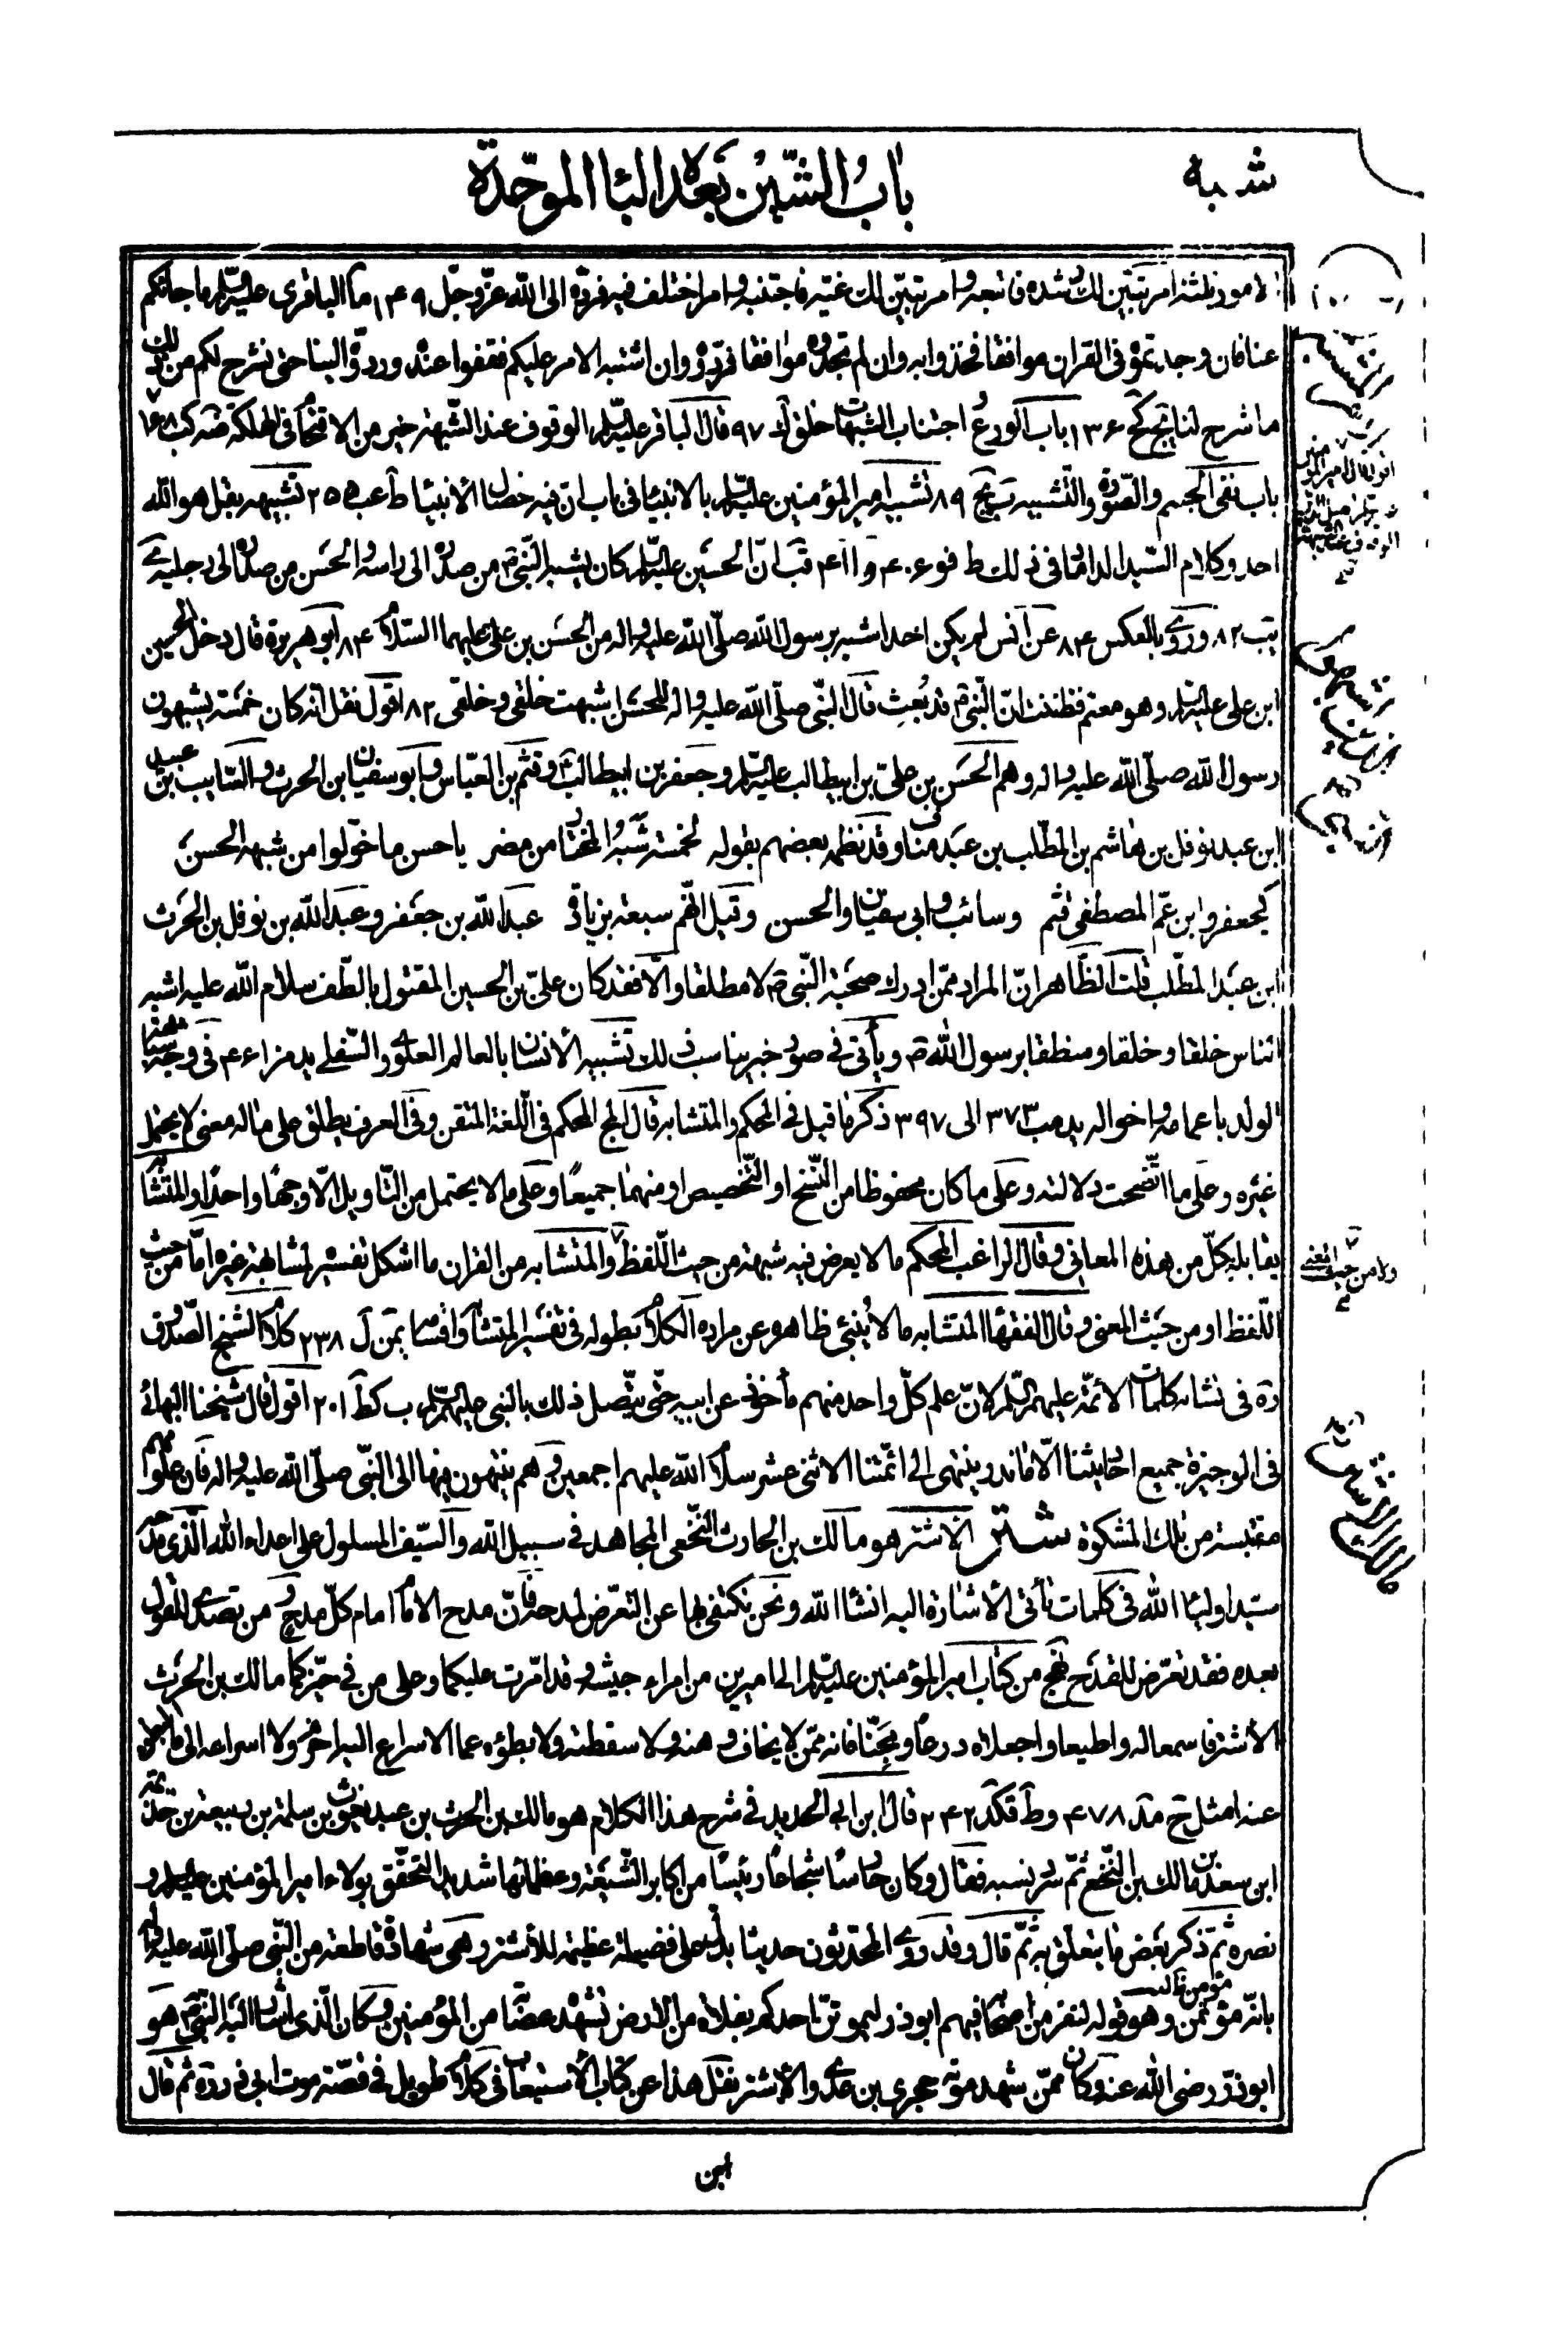 شبه
باب الشّين بعده البا الموحّدة
الامور ثلثة امر تبيّن لك رشده فاتّبعه وامر تبيّن لك غيّه فاجتنبه وامر اختلف فيه فردّه الى الله عزّ وجلّ ١٤٩ ما الباقري عليه السّلم ما جائكم
عنا فان وجدتموه فى القران موافقا فخذوا به وان لم تجدوه موافقا فردّوه وان اشتبه الامر عليكم فقفوا عنده وردّوه الينا حتى نشرح لكم من ذلك
ما شرح لنا ١٣٦ باب الورع واجتناب الشبهات خلق ٩٧ قال الباقر عليه السّلم الوقوف عند الشّبهة خير من الاقتحام فى الهلكة
باب نفى الجسم والصّورة والتّشبيه ٨٩ تشبيه امير المؤمنين عليه السّلم بالانبياء فى باب انّ فيه خصال الأنبياء ٢٥٥ تشبيهه بقل هو الله
احد وكلام السّيد الداماد فى ذلك ٤٠٦ و ٤١١ انّ الحسين عليه السّلم كان يشبه النّبىّ ص من صدره الى راسه والحسن من صدره الى رجليه
٨٢ وروى بالعكس ٨٤ عن انس لم يكن احد اشبه برسول الله صلّى الله عليه واله من الحسن بن على عليهما السّلام ٨٤ ابو هريرة قال دخل الحسين
ابن على عليه السّلم وهو معتم فظننت انّ النّبىّ ص قد بُعث قال النّبى صلّى الله عليه واله للحسن اشبهت خلقى وخلقى ٨٢ اقول نقل انّه كان خمسة يشبهون
رسول الله صلّى الله عليه واله وهم الحسن بن علىّ بن ابيطالب عليه السّلم وجعفر بن ابيطالب وقثم بن العبّاس وابو سفيان ابن الحرث والسّايب بن عبيد
ابن عبد نوفل بن هاشم بن المطّلب بن عبد مناف وقد نظمه بعضهم بقوله لخمسة شَبَهُ المختار من مضر يا حسن ما خوّلوا من شبهه الحسن
كجعفر وابن عمّ المصطفى قثم وسائب وابى سفيان والحسن وقيل انّهم سبعة بزيادة عبد الله بن جعفر وعبد الله بن نوفل بن الحرث
ابن عبد المطّلب قلت الظّاهر انّ المراد ممّن ادرك صحبة النّبىّ ص لا مطلقا والّا فقد كان علىّ بن الحسين المقتول بالطّف سلام الله عليه اشبه
النّاس خلقا وخلقا ومنطقا برسول الله ص ويأتى فى صور خبر يناسب ذلك تشبيه الأنسان بالعالم العلوى والسّفلى فى وجه مشابهة
الولد باعمامه واخواله ٣٧٣ الى ٣٩٧ ذكر ما قيل فى المحكم والمتشابه قال المحكم فى اللّغة المتقن وفى العرف يطلق على ماله معنى لا يحتمل
غيره وعلى ما اتّضحت دلالته وعلى ما كان محفوظا من النّسخ او التّخصيص او منهما جميعًا وعلى ما لا يحتمل من التّاويل الّا وجهًا واحدًا والمتشابه
يقابله بكلّ من هذه المعانى وقال الراغب المحكم ما لا يعرض فيه شبهة من حيث اللّفظ والمتشابه من القران ما اشكل تفسيره لمشابهة غيره امّا من حيث
اللّفظ او من حيث المعنى وقال الفقهاء المتشابه ما لا يُنبئ ظاهره عن مراده الكلام بطوله فى تفسير المتشابه واقسامه ٢٣٨ كلام الشّيخ الصّدوق
ره فى تشابه كلمات الأئمّة عليهم السّلم لانّ علم كلّ واحد منهم مأخوذ عن ابيه حتّى يتّصل ذلك بالنبى عليهم السّلم ٢٠١ اقول قال شيخنا البهائى
فى الوجيزة جميع احاديثنا الّا ما ندر ينتهى الى ائمّتنا الاثنى عشر سلام الله عليهم اجمعين وهم ينتهون فيها الى النّبى صلّى الله عليه واله فان علومهم
مقتبسة من تلك المشكوة شتر الاشتر هو مالك بن الحارث النّخعى المجاهد فى سبيل الله والسّيف المسلول على اعداء الله الّذى مدحه
سيّد اولياء الله فى كلمات تأتى الأشارة اليه انشاء الله ونحن نكتفى بها عن التعرّض لمدحه فانّ مدح الامام امام كلّ مدح ومن تصدى للقول
بعده فقد تعرّض للقدح نهج من كتاب امير المؤمنين عليه السّلم الى اميرين من امراء جيشه وقد امّرت عليكما وعلى من فى حيّزكما مالك بن الحرث
الأشتر فاسمعا له واطيعا واجعلاه درعًا ومجنّا فانه ممّن لا يخاف وهنه ولا سقطته ولا بطؤه عما الاسراع اليه احزم ولا اسراعه الى ما البطؤ
عنه امثل ٤٧٨ ٢٤٢ قال ابن ابى الحديد فى شرح هذا الكلام هو مالك بن الحرث بن عبد يغوث بن سلمة بن ربيعة بن خذيمة
ابن سعد بن مالك بن النّخع ثمّ سرد نسبه فقال وكان فارسًا شجاعًا رئيسًا من اكابر الشّيعة وعظمائها شديد التحقّق بولاء امير المؤمنين عليه السّلم و
نصره ثمّ ذكر بعض ما يتعلّق به ثمّ قال وقد روى المحدّثون حديثا يدلّ على فضيلة عظيمة للأشتر وهى شهادة قاطعة من النّبى صلّى الله عليه واله
بانّه مؤتمن وهو قوله لنفر من اصحابه فيهم ابوذر ليموتنّ احدكم بفلاة من الارض تشهده عصابة من المؤمنين وكان الّذى اشار اليه النّبىّ ص هو
ابوذرّ رضى الله عنه وكان ممّن شهد موته حجر بن عدى والأشتر نقل هذا عن كتاب الأستيعاب فى كلام طويل فى قصّة موت ابى ذر ره ثم قال
ابن